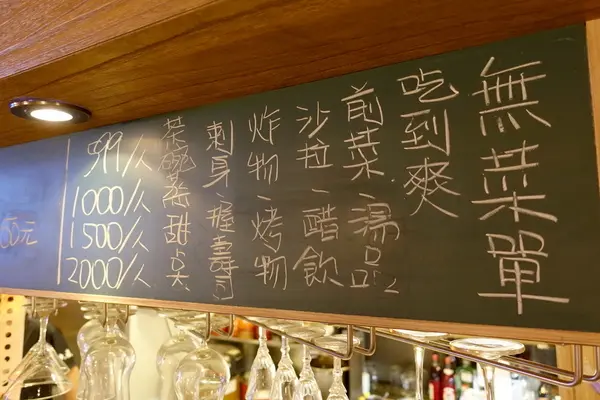 無菜單
吃到爽
前菜-湯品
沙拉-醋飲
炸物-烤物
刺身-握壽司
茶碗蒸-甜点
999/人
1000/人
1500/人
2000/人
50元